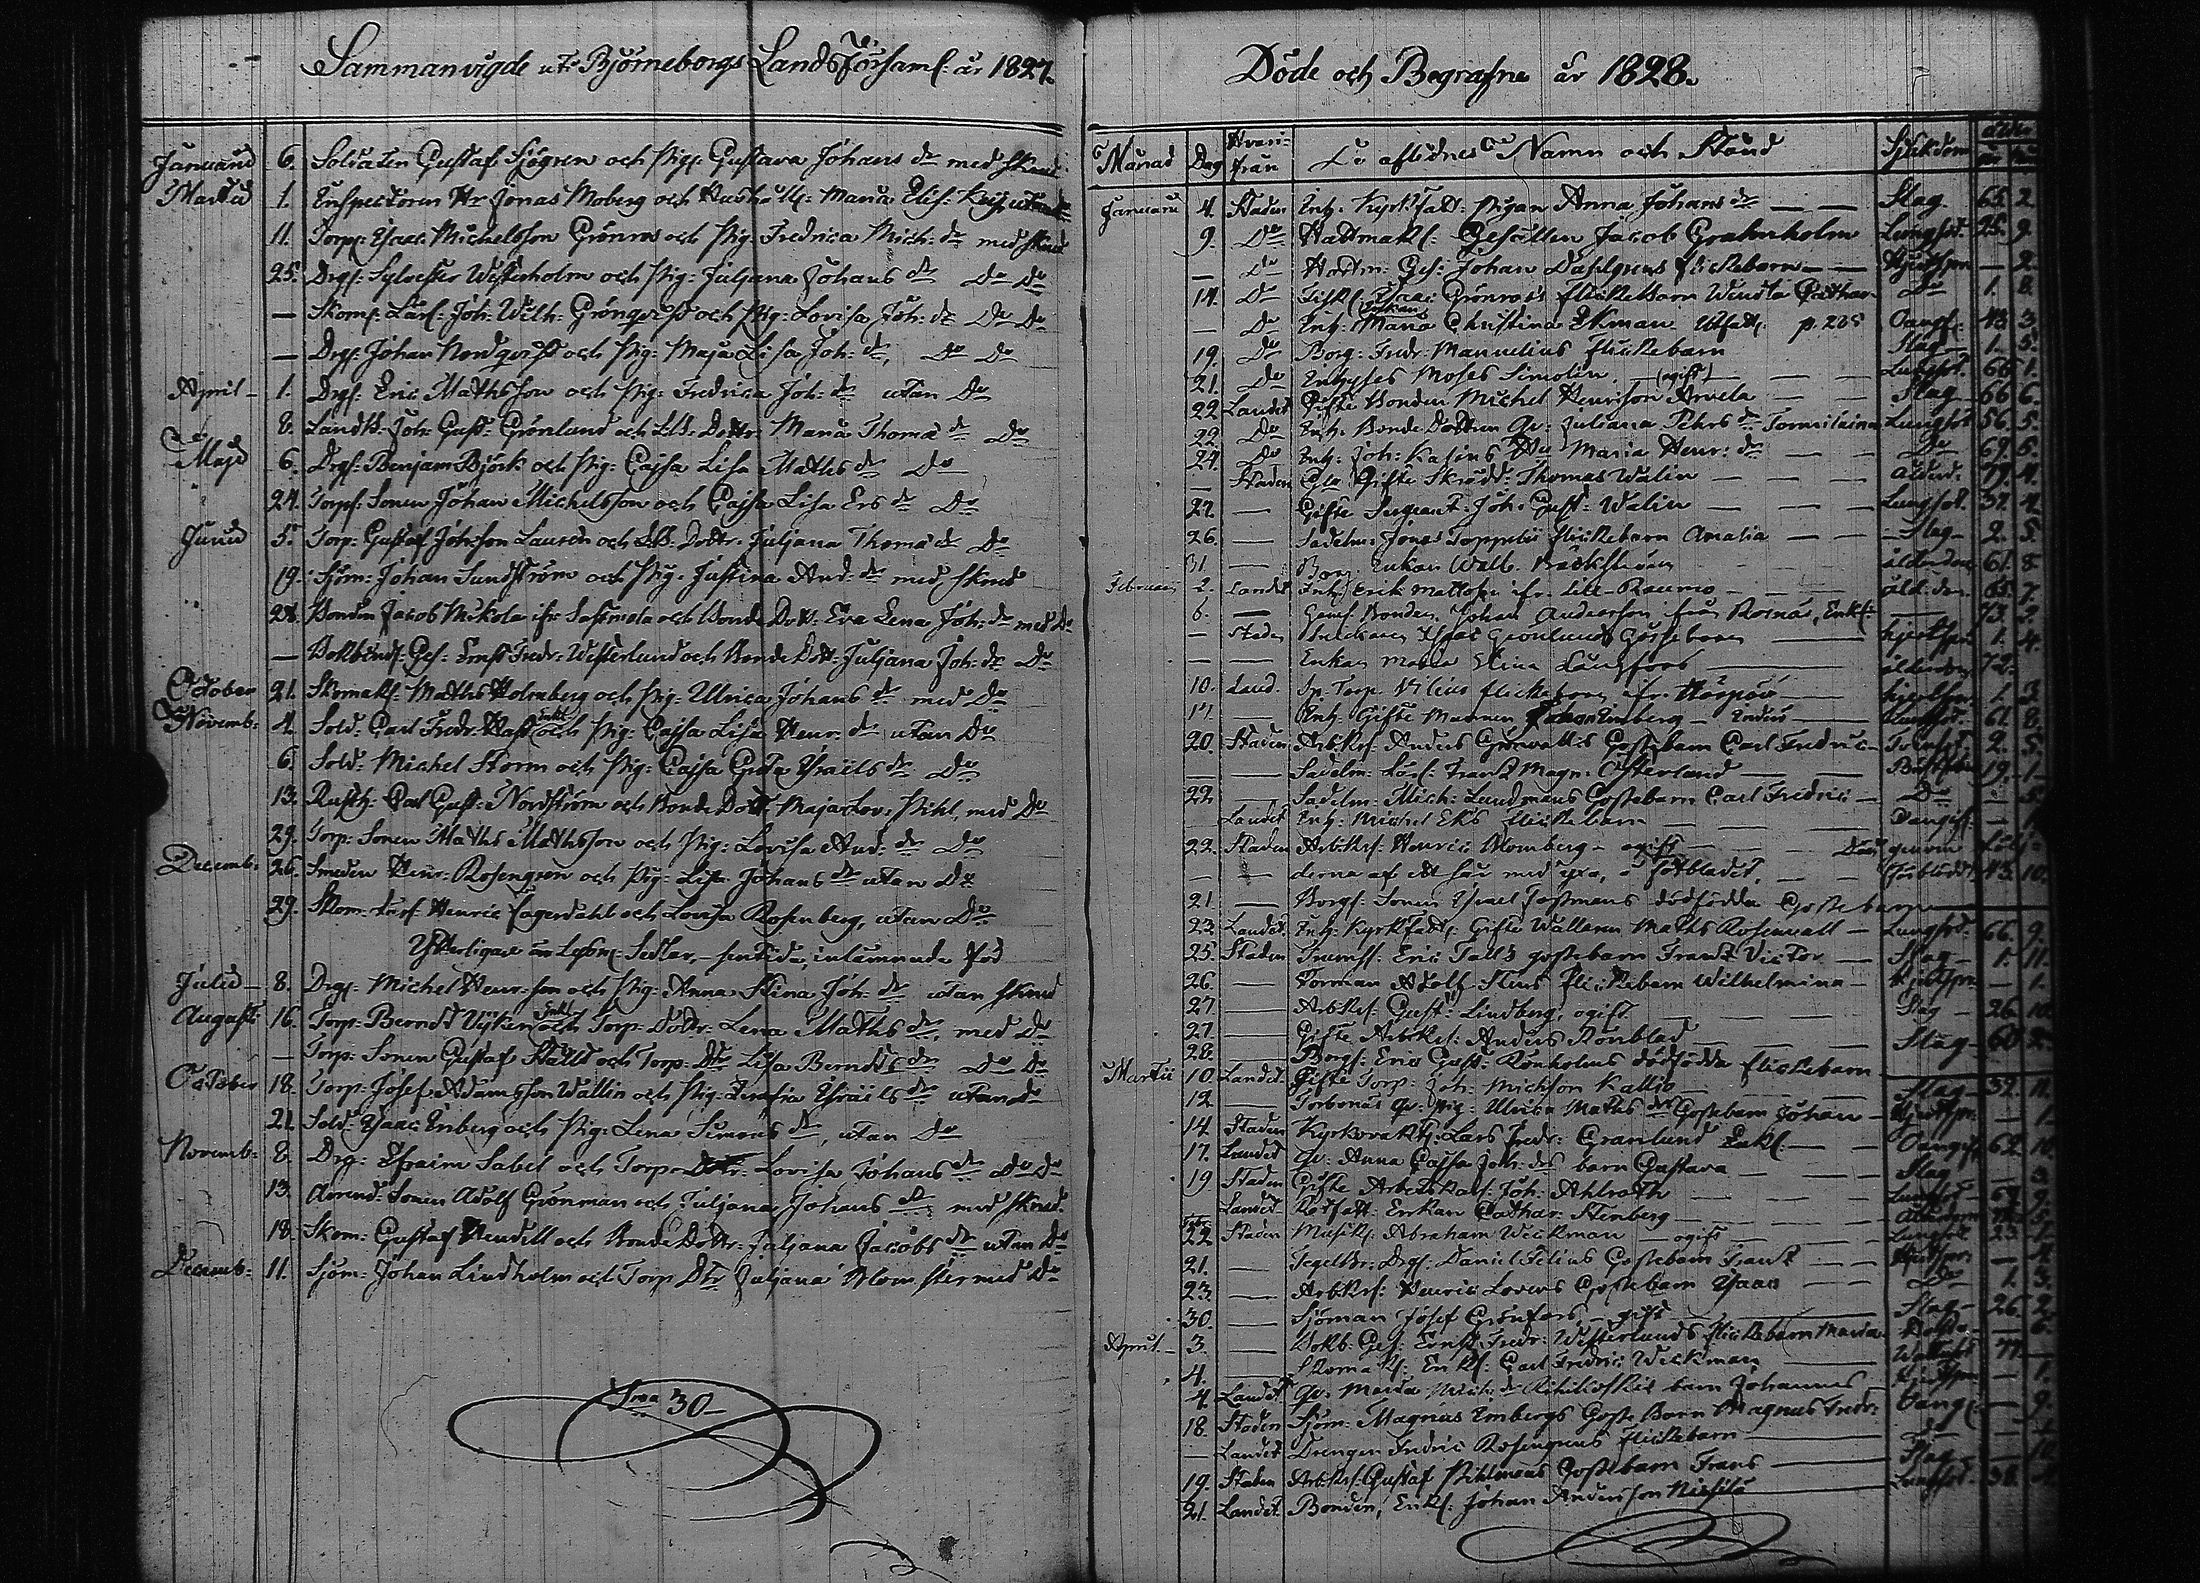 Sammanvigde uti Björneborgs Lands Församl: år 1827.
Januarii 6. Soldaten Gustaf Sjögren och Pig: Gustava Johans dr med skrud
Martii 1. Inspectoren Hr Jonas Moberg och Hushåll: Maria Elis:
11. Torp: Isaac Michelsson Grönros och Pig: Fredrica Mich: dr med skrud
25. Drg: Sylvester Westerholm och Pig: Juljana Johans dr Do Do
— Skom: Lärl: Joh: Wilh: Grönqvist och Pig: Lovisa Joh: dr Do Do
— Drg: Johan Nordqvist och Pig: Maja Lisa Joh: dr, Do Do
April — 1. Drg: Eric Mathsson och Pig: Fredrica Joh: dr utan Do
8. Landtb: Joh: Gust: Grönlund och LB: Dottr: Maria Thomæ dr Do
Maji 6. Drg: Benjam Björk och Pig: Cajsa Lisa Maths dr Do
24. Torp: Sonen Johan Michelsson och Cajsa Lisa Ers dr Do
Junii 5. Torp: Gustaf Johsson Laurén och LB: Dottr: Juljana Thomæ dr Do
19. Sjöm: Johan Sundström och Pig: Justina And: dr med skrud
28. Bonden Jacob Mickola ifr: Sastmola och Bonde Dott: Eva Lena Joh: dr med Do
— Bokbind: Ges: Ernst Fredr: Westerlund och Bonde Dott: Juljana Joh: dr Do
October 21. Skomak: Maths Holmberg och Pig: Ulrica Johans dr med Do
Novemb: 4. Sold: Carl Fredr: Hast Enkl och Pig: Cajsa Lisa Henr: dr utan Do
6. Sold: Michel Storm och Pig: Cajsa Greta Israels dr Do
13. Rusth: Carl Gust: Nordström och Bonde Dott: Maja Lov: Pihl, med Do
29. Torp: Sonen Maths Mathsson och Pig: Lovisa And: dr Do
Decemb: 26. Smeden Henr: Rosengren och Pig: Lisa Johans dr utan Do
29. Skom: Lärl: Henric Fagerdahl och Lovisa Rosenberg, utan Do
Ytterligare
Julii — 8. Drg: Michel Henr:son och Pig: Anna Stina Joh: dr utan skrud
Augusti 16. Torp: Berndt Enkl och Torp: Dottr: Lena Maths dr, med Do
— Torp: Sonen Gustaf Ståhl och Torp: Dtr Lisa Berndts dr Do Do
October 18. Torp: Josef Adamsson Wallin och Pig: Serafia Israels dr utan Do
21. Sold: Isaac Enberg och Pig: Lena Simons dr, utan Do
Novemb: 8. Drg: Efraim Sabel och Torp: Dottr: Lovisa Johans dr Do Do
13. Arrend: Sonen Adolf Grönman och Juljana Johans dr med skrud.
18. Skom: Gustaf Vendell och Bonde Dottr: Juljana Jacobs dr utan Do
Decemb: 11. Sjöm: Johan Lindholm och Torp Dtr Juljana Blomster med Do
Sma 30 —
Döde och Begrafne år 1828.
Månad Dag Hvarifrån De aflidnes Namn och Stånd Sjukdom ålder
år
Januarii 4. Staden Inh: Kyrkfatt: Pigan Anna Johans dr — — Slag 65. 2
9. Do Hattmak: Gesällen Jacob Grahnholm Lungsot. 25. 9
— Do Ges: Johan Dahlgrens flickebarn — — — 2.
14. Do Fisk: Isaac Grönros's flickebarn Wendla Cathar: Do 1. 8.
— Do Enk: Maria Christina Ekman Utfatt: p. 228 Oangif: 43. 3
19. Do Borg: Fredr: Mannelius flickebarn Slag 1. 5.
21. Do Inhyses Moses Simolin (ogift) — — Lungsot. 66. 1.
22. Landet Gifte Bonden Michel Henrsson Arvela — — Slag 66. 6.
22. Do Enk: Bonde Dottren Qv: Juliana Pehrs dr Lungsot 56. 5.
24. Do Inh: Joh: Kasius Hu Maria Henr: dr — — Do 69. 5.
— Staden Gla Gifte Skrädd: Thomas Walin — — — ålderd: 79. 4.
27. — Gifte Sergeant: Joh: Gust: Walin — — — Lungsot. 37. 4.
26. — Sadelm: Jonas Toppelii flickebarn Amalia — — Slag 2. 5.
31 — Borg Enkan Walb. Bäckström — ålderdom 61. 8
Februarii 2. Landet Inh: Erik Mattsson ifr. Lill-Raumo — åld:dom 65. 7.
6. — Bonden Johan Andersson från Enkl: — 73. 2.
— Staden Isaac Grönlunds Gossebarn — 1. 4.
— — Enkan Maria Stina Långfors — ålderdom 72.
10. Land. Sp. Torp. Vilius flickebarn ifr. — 1. 3.
17. — Inh: Gifte Mannen Johan Enberg — Lungsot. 61. 8.
20. Staden Arbkrl: Anders Grönvalls Gossebarn Carl Fredric — 2. 5.
— — Sadelm: Lärl: Frantz Magn: Österland — Bröstfeber 19. 1.
22. — Sadelm: Mich: Lundmans Gossebarn Carl Fredric — Do — 5.
— Landet Inh: Michel Eks flickebarn — Oangif:
22. Staden Arbkrl: Henric Blomberg — ogift — genom
— — derna af ett hår med yxa, i fotbladet, — — Förblödt. 43. 10.
21. — Borg: Sonen Israel dödfödda Gossebarn
23. Landet. Inh: Kyrkfatt: Gifte Wallaren Maths Rosenvall — Lungsot. 66. 9.
25. Staden Eric Talls gossebarn Frantz Victor — Slag 1. 11.
26. — Forman Adolf flickebarn Wilhelmina — — 1.
27. — Arbkrl: Gust: Lindberg, ogift — Slag 26. 10.
27. — Gifte Arbkrl: Anders Rönblad — Slag 60. 2.
28. — Borg: Eric Gust: Rönholms dödfödda flickebarn
Martii 10. Landet. Gifte Torp: Joh: Michsson Kallio — Slag 37. 11.
12. — Qv: Pig: Ulrica Maths drs Gossebarn Johan — 1.
14. Staden Kyrkovakt: Lars Fredr: Granlund Enkl. — Oangif. 62. 10.
17. Landet Qv: Anna Cajsa Joh: drs barn Gustava — Slag — 3.
19 Staden Gifte Arbetskarl: Joh: Ahlroth — Lungsot 67. 9.
Landet Rotfatt: Enkan Cathar: Stenberg — ålderdom
22 Staden Musik: Abraham Weckman — ogift — Lungsot 23. 1.
21. — Drg: Daniel Gossebarn Frantz —
23. — Arbkrl: Henric Gossebarn Isaac — Do 1. 3.
30. — Sjöman Josef Grönfors, gift — Slag — 26. 2.
April — 3. — Bokb: Ges: Ernst Fredr: Westerlunds flickebarn Maria — 6.
4. — Skomak: Enkl: Carl Fredric Weckman — 77.
4. Landet Qv: Maria Mich: dr barn Johannes — 1.
18. Staden Sjöm: Magnus Enbergs Gosse Barn Magnus Fredr: Oangif: — 9.
— Landet Drengen Fredric Rosengrens flickebarn — do
19. Staden Arbkrl: Gustaf Pihlmans Gossebarn Frans — Slag — 10.
21. Landet Bonden, Enkl: Johan Andersson Nissilä — Lungsot. 38.